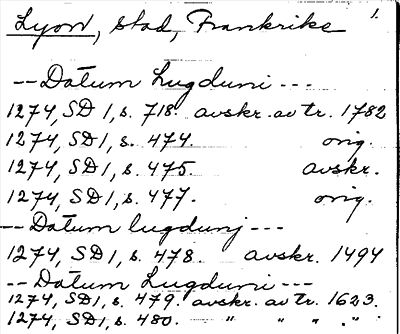 1.
Lyon, stad, Frankrike
-- Datum Lugduni ---
1274, SD 1, s. 718. avskr. av tr. 1782
1274, SD 1, s. 474. orig.
1274, SD 1, s. 475. avskr.
1274, SD 1, s. 477. orig.
-- Datum lugdunj ---
1274, SD 1, s. 478. avskr. 1494
-- Datum Lugduni ---
1274, SD 1, s. 479. avskr. av tr. 1623.
1274, SD 1, s. 480. " " " " .